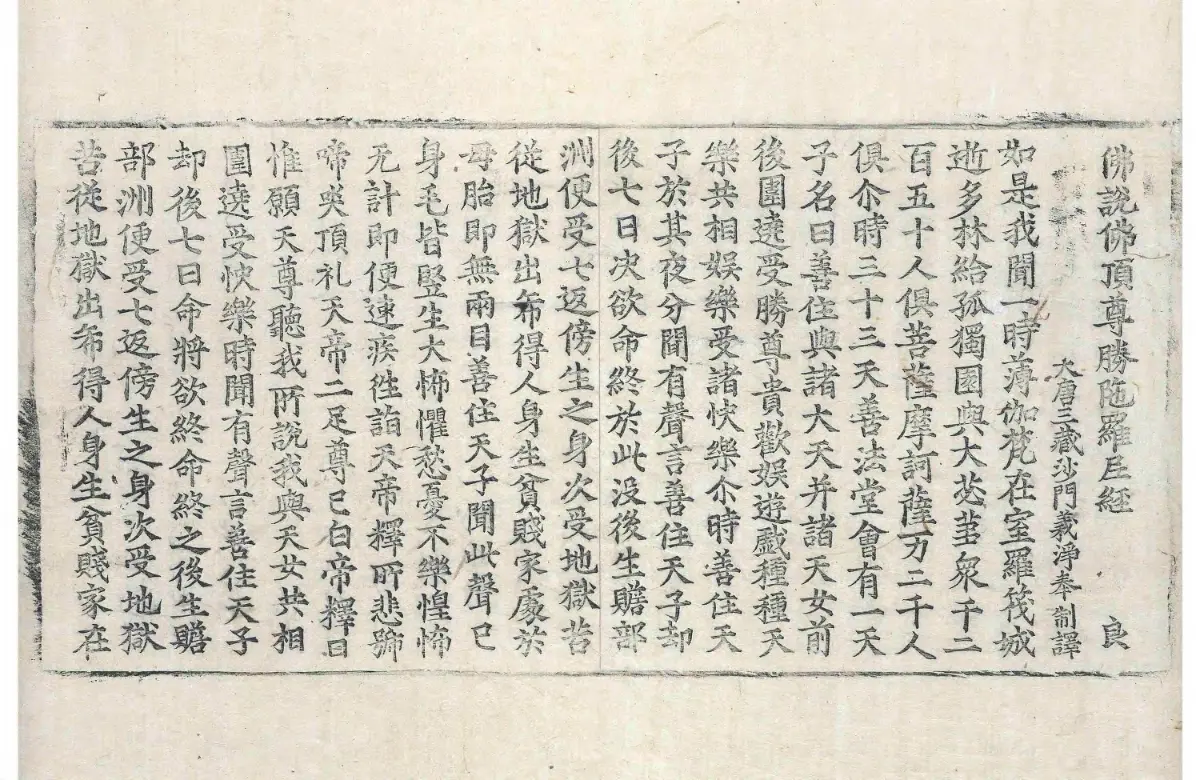 佛說佛頂尊勝陁羅尼經 良
大唐三藏沙門義淨奉制譯
如是我聞一時薄伽梵在室羅筏城
逝多林給孤獨園與大苾芻衆千二
百五十人俱菩薩摩訶薩万二千人
俱尒時三十三天善法堂會有一天
子名曰善住與諸大天并諸天女前
後圍遶受勝尊貴歡娛遊戲種種天
樂共相娛樂受諸快樂尒時善住天
子於其夜分聞有聲言善住天子却
後七日決欲命終於此没後生贍部
洲便受七返傍生之身次受地獄苦
從地獄出希得人身生貧賤家處於
母胎即無兩目善住天子聞此聲已
身毛皆竪生大怖懼愁憂不樂惶怖
无計即便速疾徃詣天帝釋所悲號
啼哭頂礼天帝二足尊已白帝釋曰
惟願天尊聽我所說我與天女共相
圍遶受快樂時聞有聲言善住天子
却後七日命將欲終命終之後生贍
部洲便受七返傍生之身次受地獄
苦從地獄出希得人身生貧賤家在